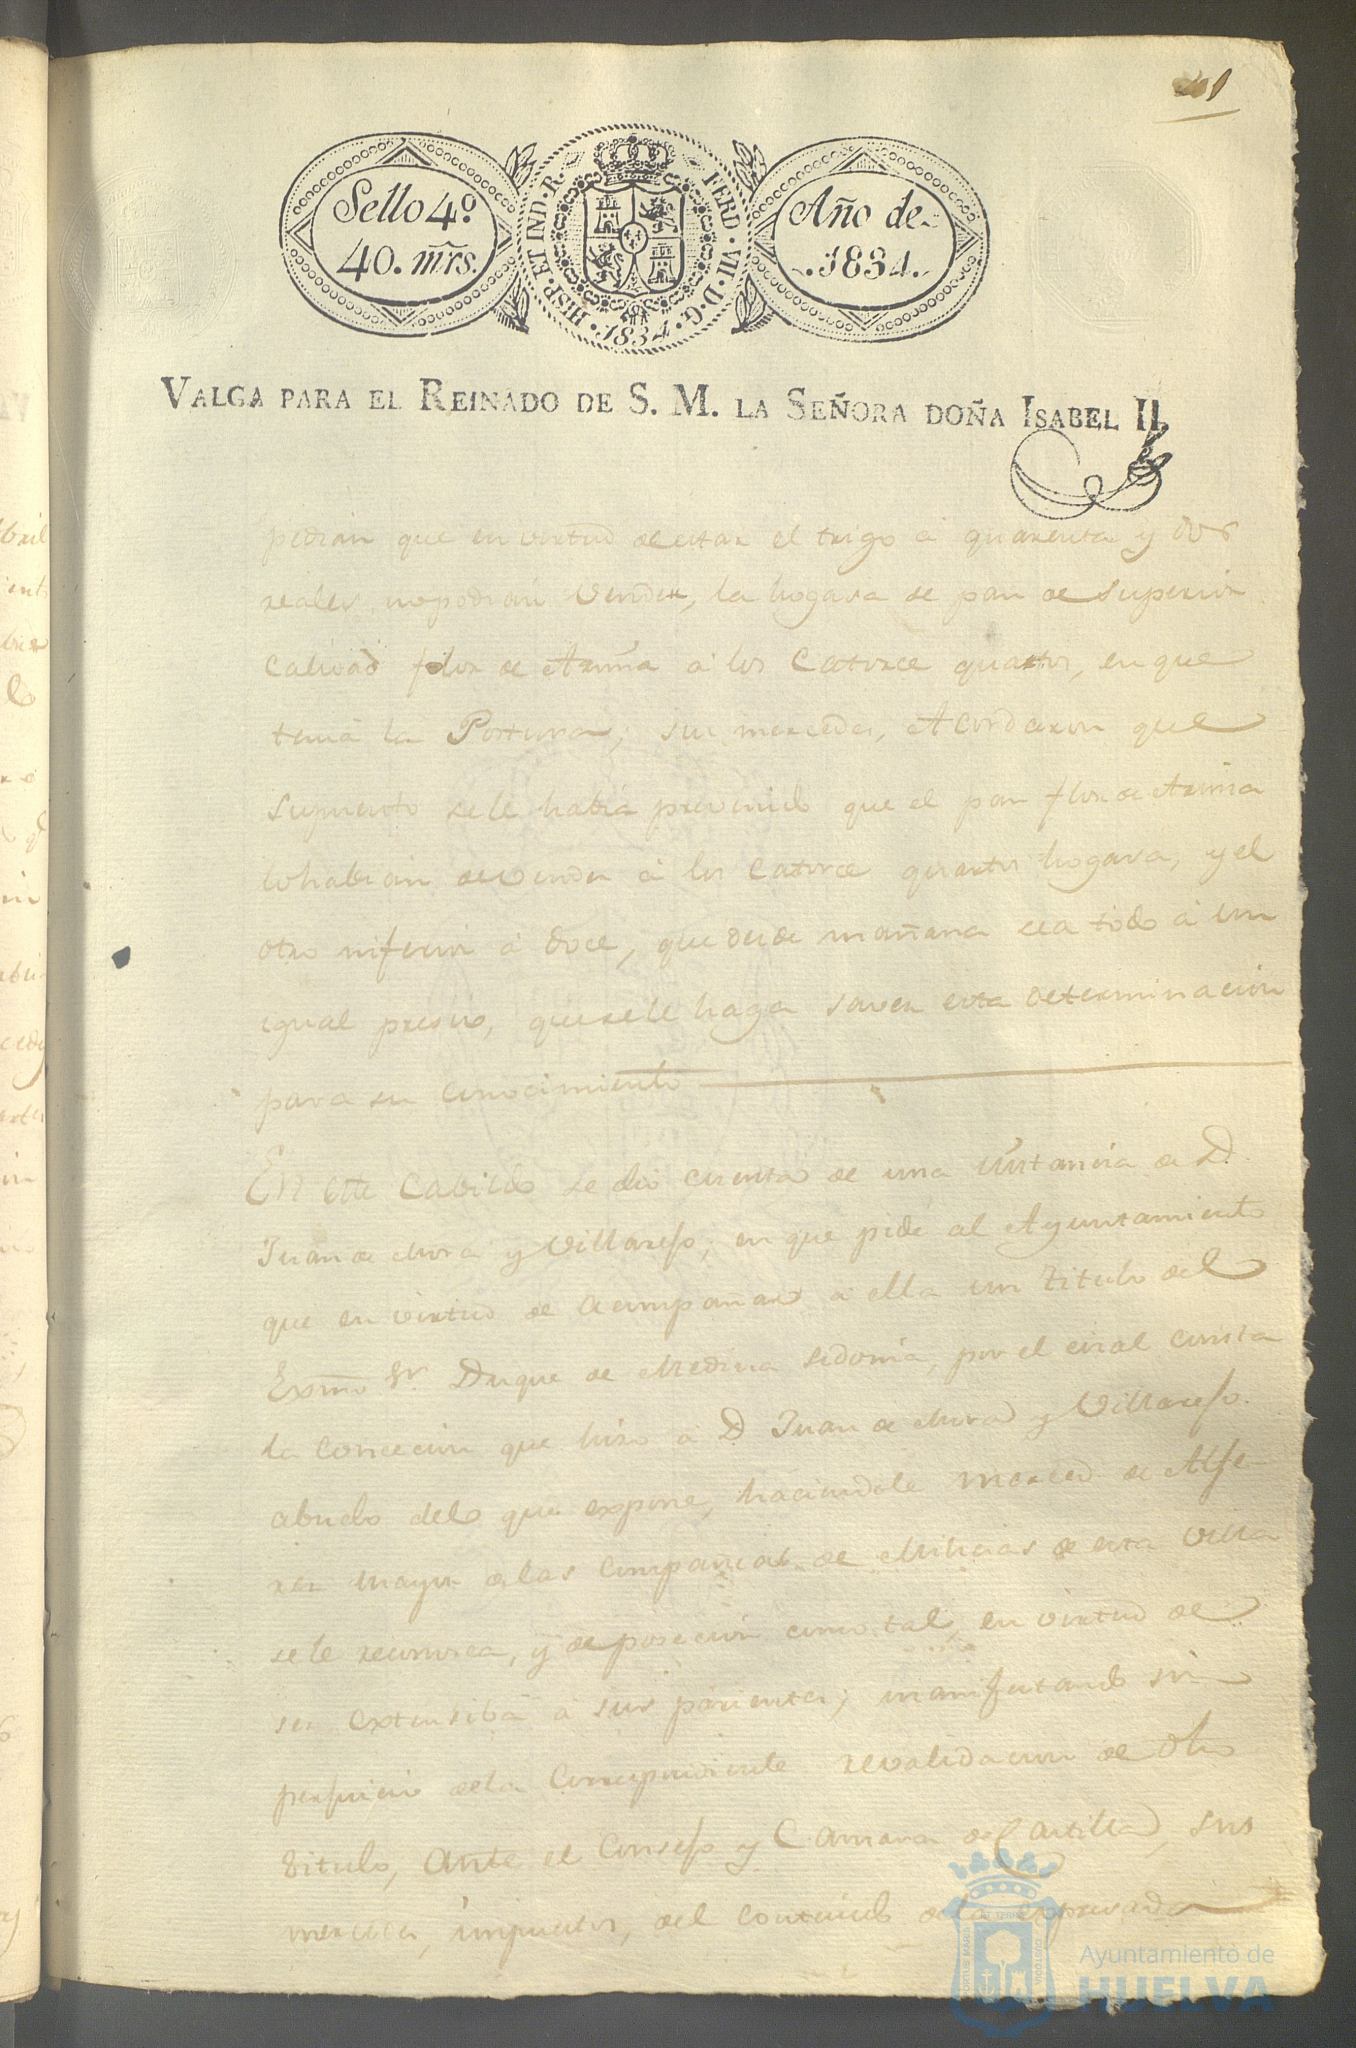 Sello 4º
40. mrs.
HISP. ET IND. R.
FERD. VII. D. G.
.1834.
Año de
.1834.
VALGA PARA EL REINADO DE S. M. LA SEÑORA DOÑA ISABEL II.
pedian que en virtud de estar el trigo á quarenta y dos
reales no podian vender, la hogasa de pan de superior
calidad flor de Arina á los catorce quartos, en que
tenia la Postura; sus mercedes, Acordaron que
supuesto sele habia prevenido que el pan flor de Arina
lo habian de vender á los catorce quartos hogasa, y el
otro inferior á doce, que desde mañana sea todo á un
igual presio, que sele haga saver esta determinacion
para su conocimiento
En este Cabildo se dio cuenta de una instancia de D.
Juan de Mora y Villarejo; en que pide al Ayuntamiento
que en virtud de acompañar á ella un titulo del
Exmo Sr. Duque de Medina Sidonia, por el cual consta
la concecion que hiso á D Juan de Mora y Villarejo.
abuelo del que expone, haciendole merced de Alfe-
res mayor de las compañias de Milicias de esta Villa
sele reconosca, y de posecion como tal, en virtud de
ser extensiba á sus parientes; manifestando sin
perjuicio dela correspondiente revalidacion de dho
titulo, Ante el Consejo y Camara de Castilla, sus
mercedes, impuestos, del contenido dela expresada
Ayuntamiento de
HUELVA